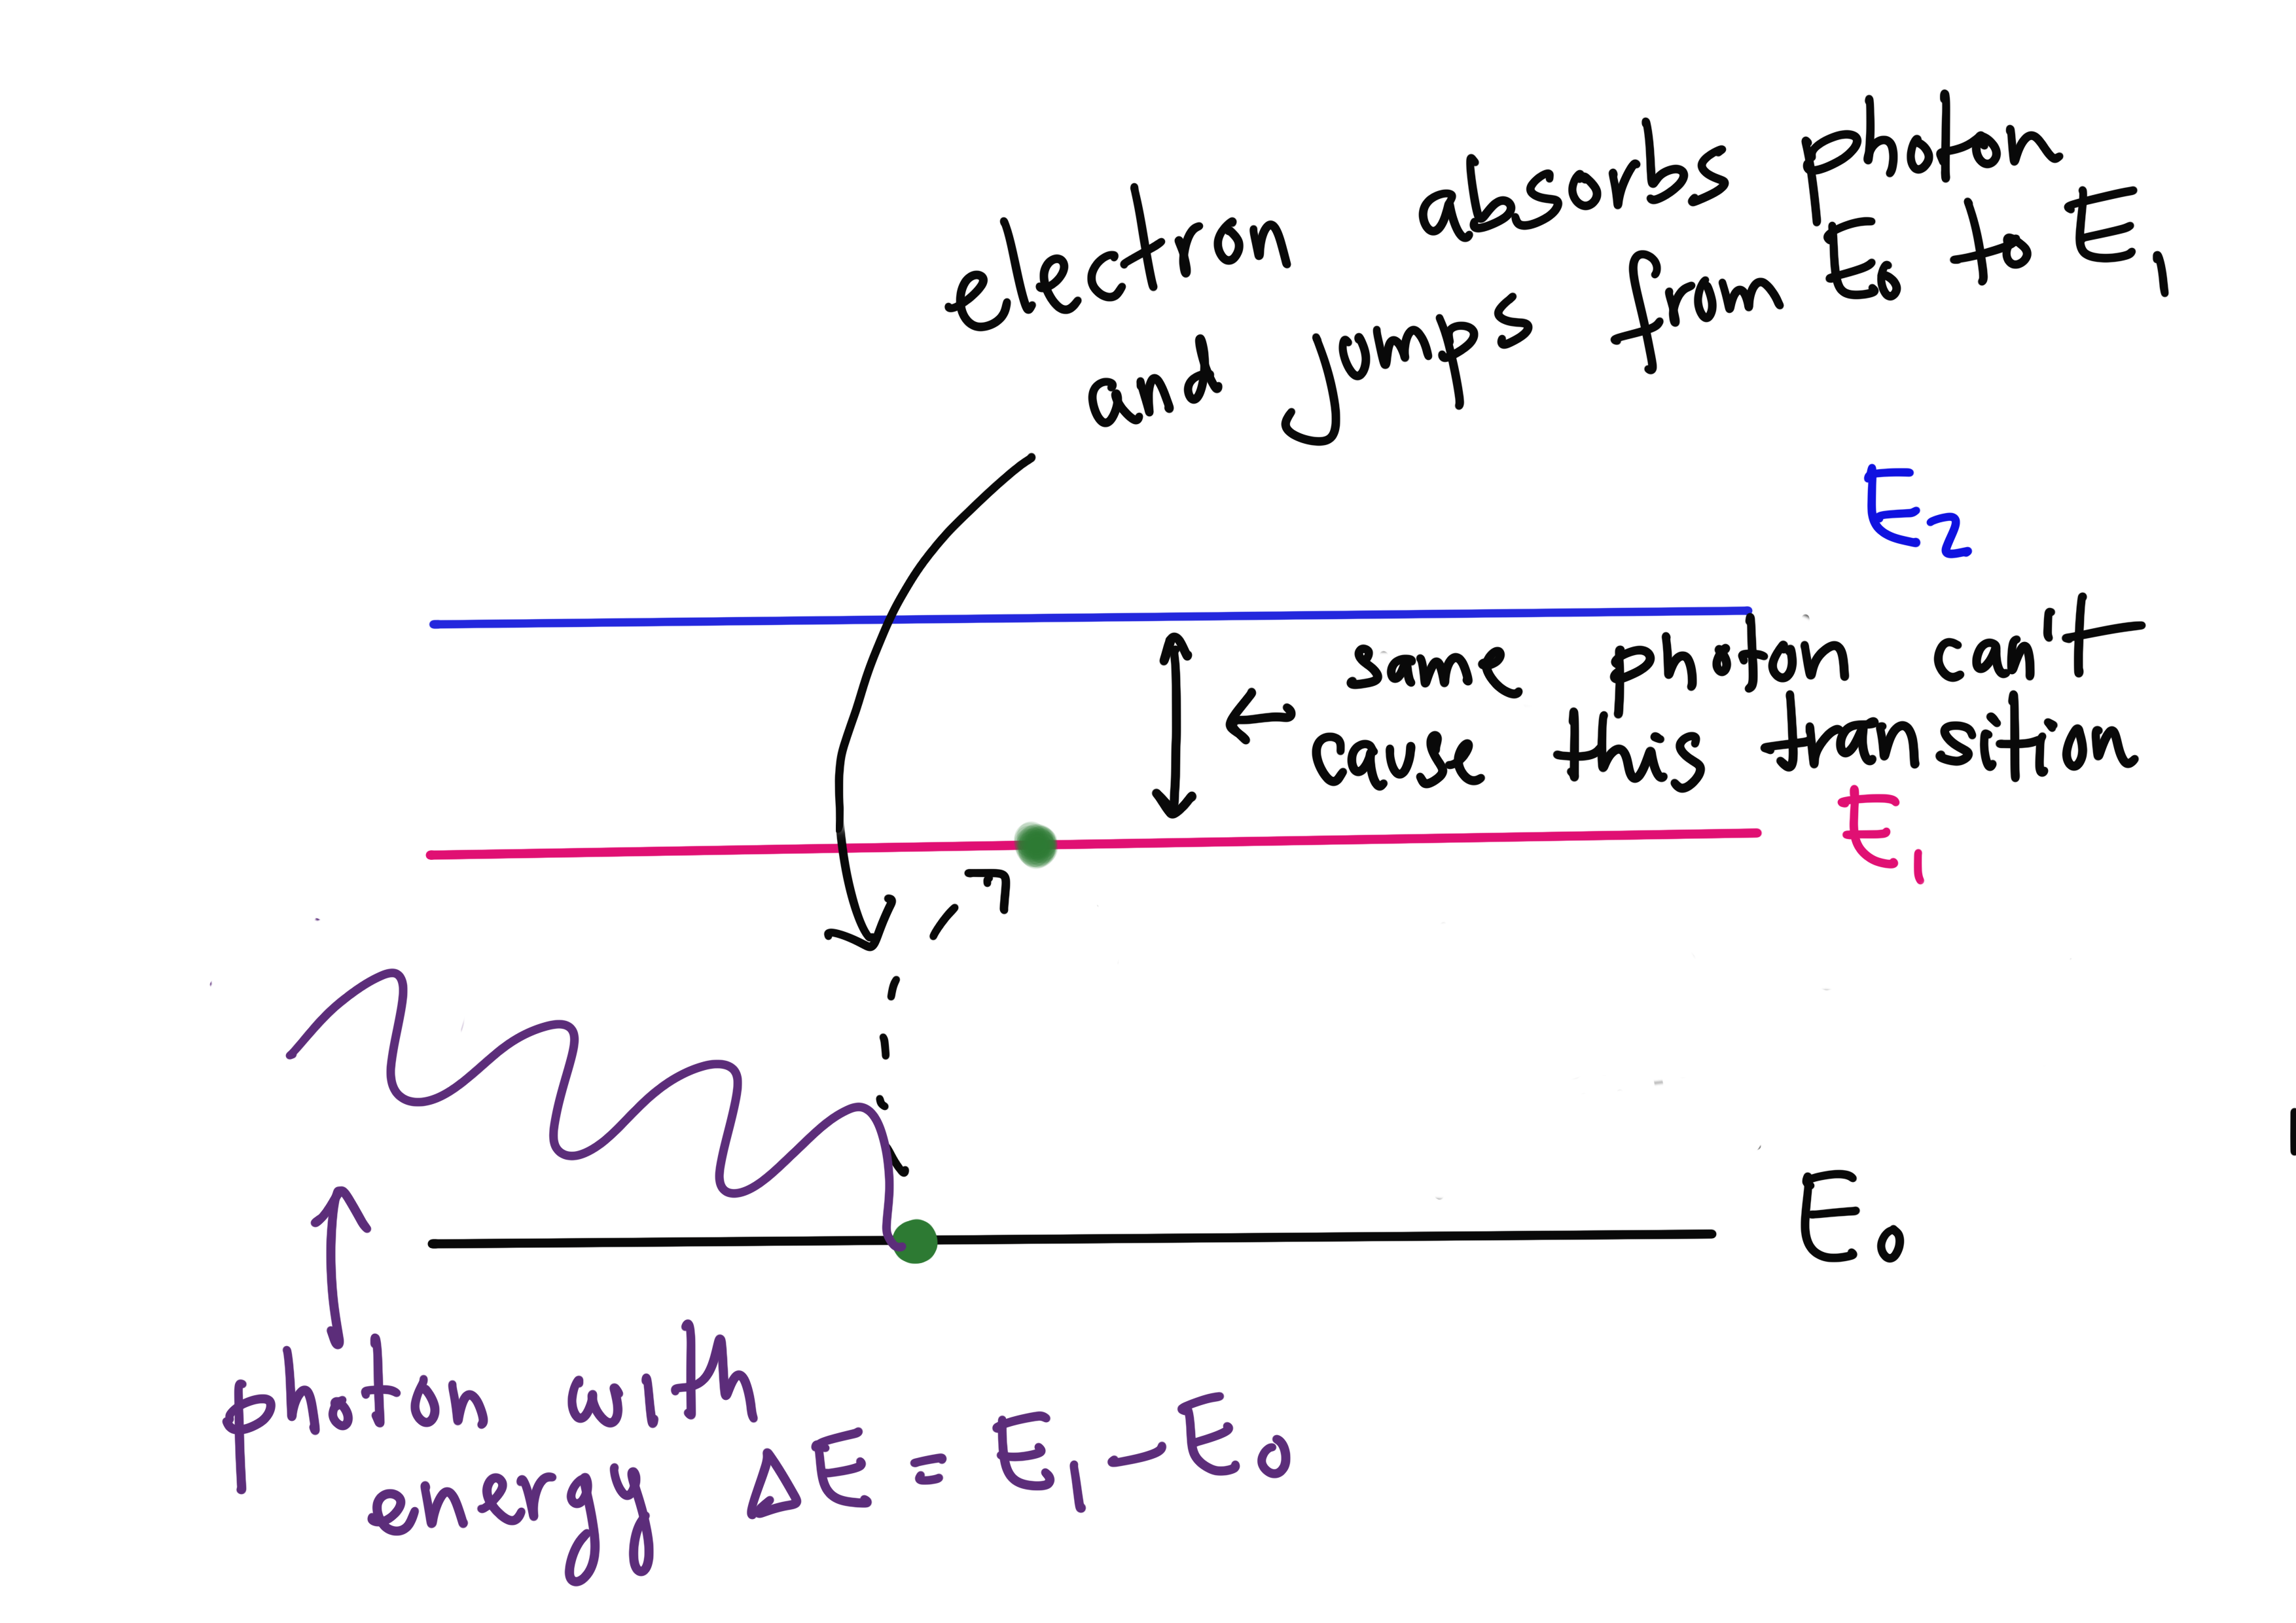 electron absorbs photon
and jumps from E₀ to E₁
E₂
same photon can't
cause this transition
E₁
E₀
photon with
energy ΔE = E₁ - E₀